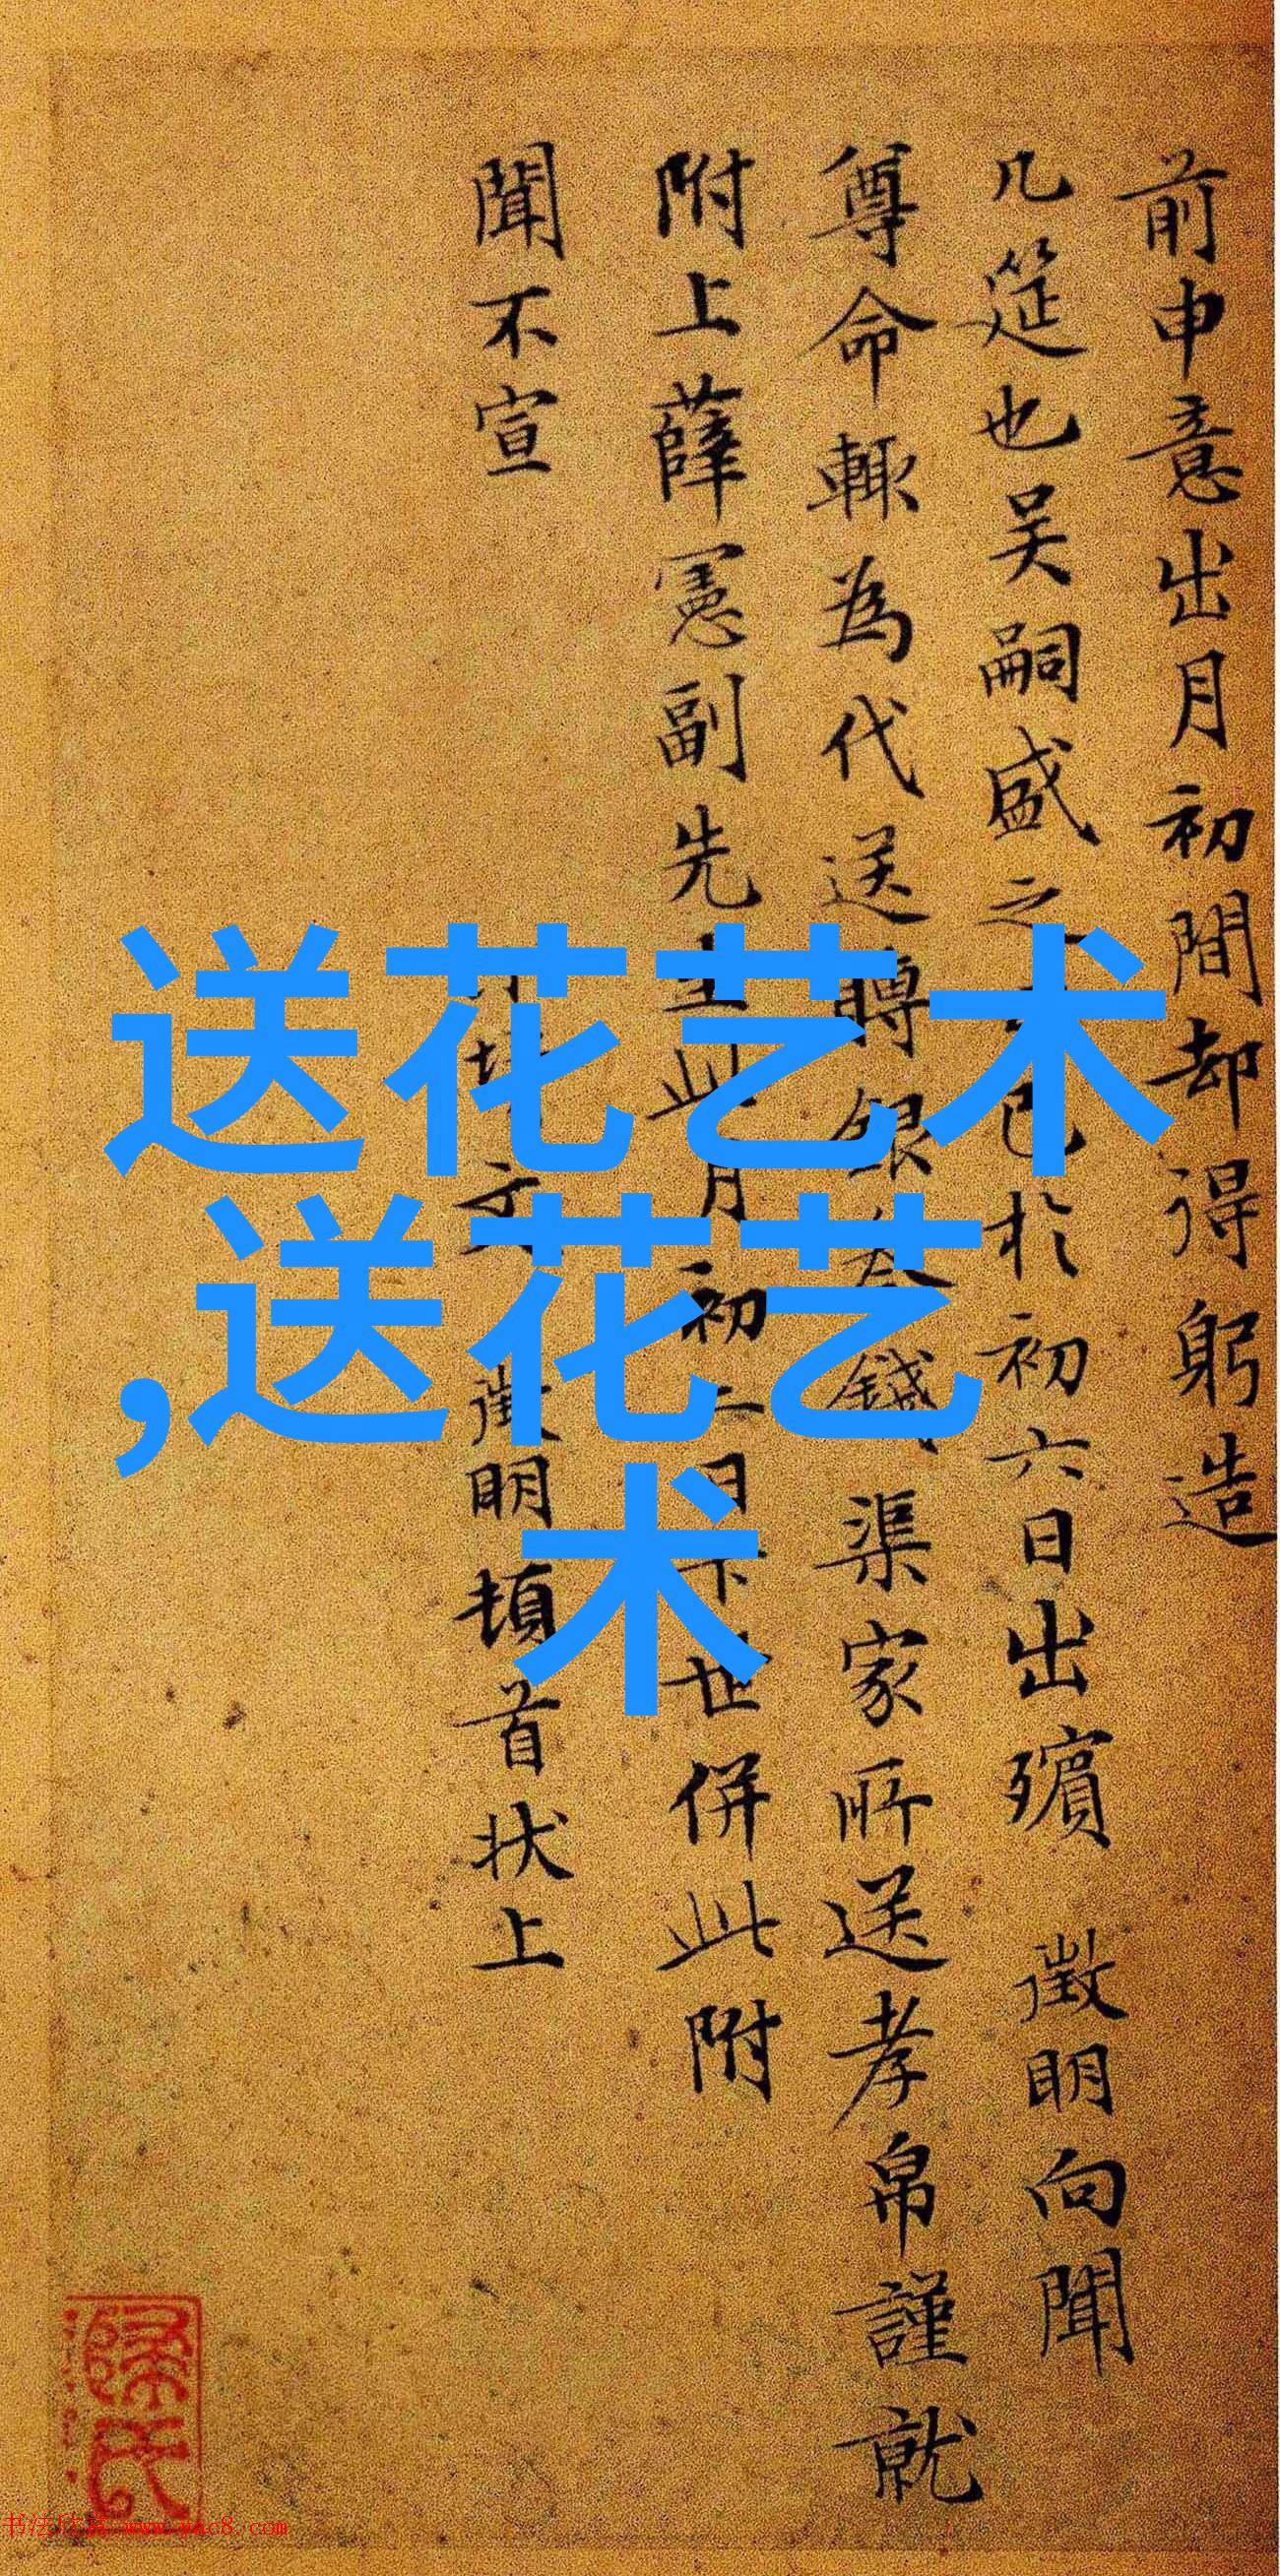 前申意出月初間却得躬造
几筵也吴嗣盛之已於初六日出殯 徴明向聞
尊命輙為代送賻銀 錢渠家所送孝帛謹就
附上薛憲副先 此月初二日 世併此附
聞不宣
徴明頓首状上
送花艺术
,送花艺
术
書法欣赏 www.yac8.com